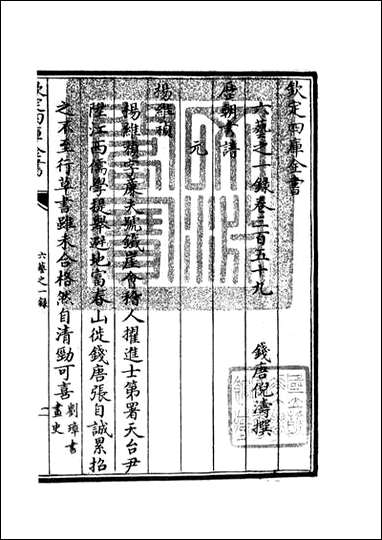 欽定四庫全書
六藝之一錄卷三百五十九
錢唐倪濤撰
歷朝書譜
元
楊維禎
楊維禎字廉夫號鐵崖會稽人擢進士第署天台尹
陞江西儒學提舉避地富春山徙錢唐張自誠累招
之不至行草書雖未合格然自清勁可喜 劉璋書
畫史
欽定四庫全書
六藝之一錄
一